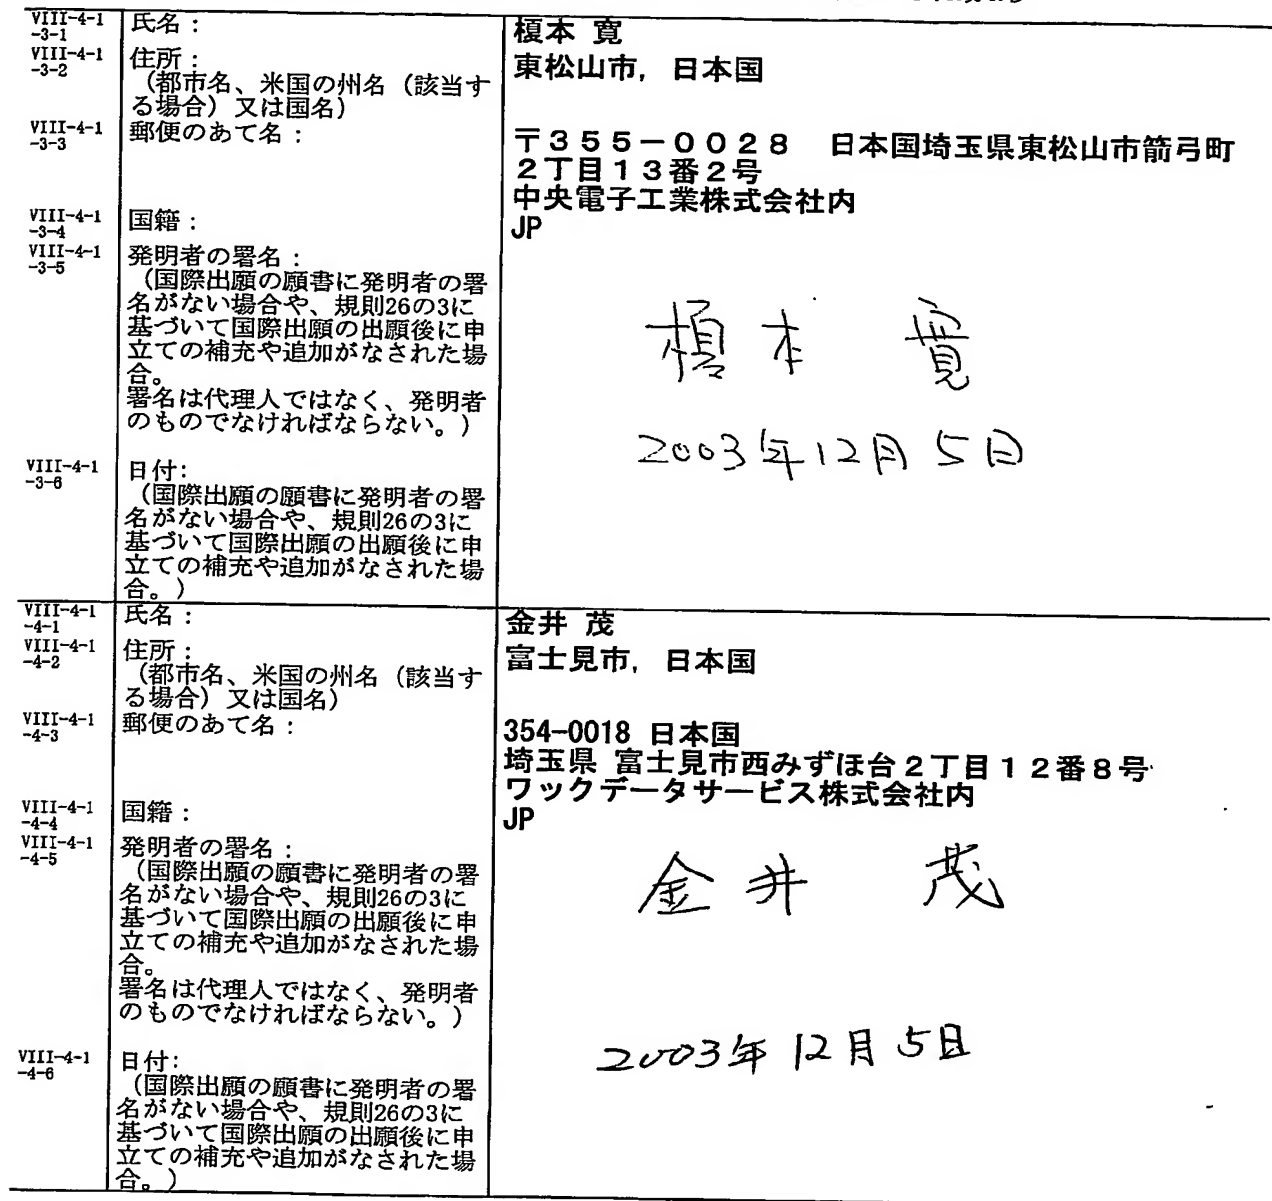 VIII-4-1
-3-1
氏名：
榎本 寛
VIII-4-1
-3-2
住所：
（都市名、米国の州名（該当す
る場合）又は国名）
東松山市, 日本国
VIII-4-1
-3-3
郵便のあて名：
〒３５５－００２８　日本国埼玉県東松山市箭弓町
２丁目１３番２号
中央電子工業株式会社内
VIII-4-1
-3-4
国籍：
JP
VIII-4-1
-3-5
発明者の署名：
（国際出願の願書に発明者の署
名がない場合や、規則26の3に
基づいて国際出願の出願後に申
立ての補充や追加がなされた場
合。
署名は代理人ではなく、発明者
のものでなければならない。）
榎本 寛
VIII-4-1
-3-6
日付:
（国際出願の願書に発明者の署
名がない場合や、規則26の3に
基づいて国際出願の出願後に申
立ての補充や追加がなされた場
合。）
2003年12月5日
VIII-4-1
-4-1
氏名：
金井 茂
VIII-4-1
-4-2
住所：
（都市名、米国の州名（該当す
る場合）又は国名）
富士見市, 日本国
VIII-4-1
-4-3
郵便のあて名：
354-0018 日本国
埼玉県 富士見市西みずほ台２丁目１２番８号
ワックデータサービス株式会社内
VIII-4-1
-4-4
国籍：
JP
VIII-4-1
-4-5
発明者の署名：
（国際出願の願書に発明者の署
名がない場合や、規則26の3に
基づいて国際出願の出願後に申
立ての補充や追加がなされた場
合。
署名は代理人ではなく、発明者
のものでなければならない。）
金井 茂
VIII-4-1
-4-6
日付:
（国際出願の願書に発明者の署
名がない場合や、規則26の3に
基づいて国際出願の出願後に申
立ての補充や追加がなされた場
合。）
2003年12月5日